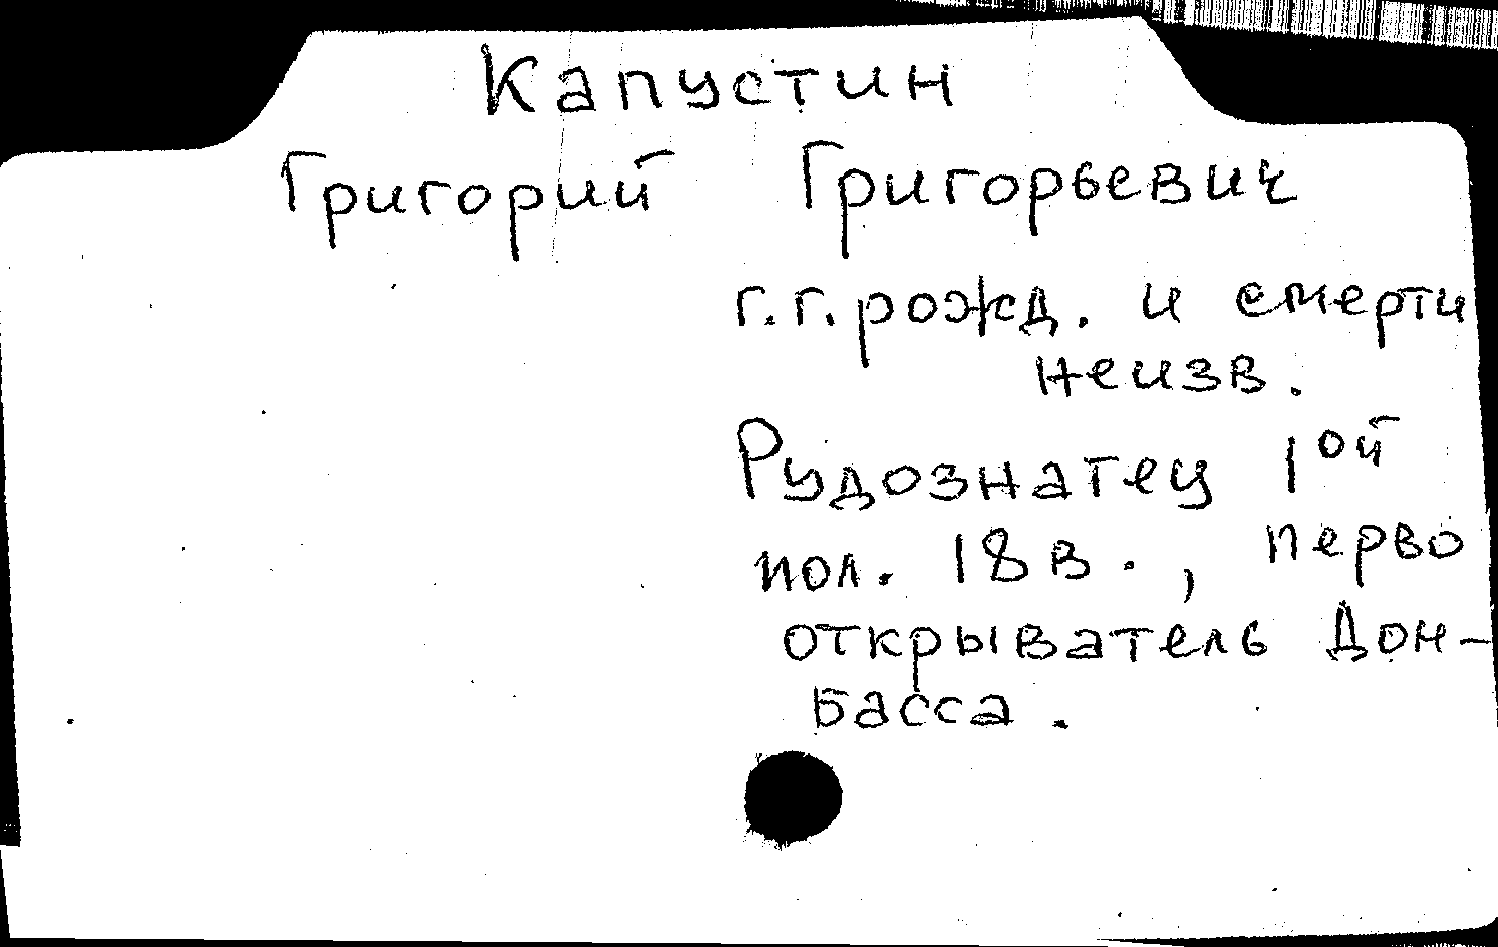 Капустин
Григорий Григорьевич
г.г. рожд. и смерти
неизв.
Рудознатец 1ой
пол. 18 в., перво
открыватель Дон-
басса.